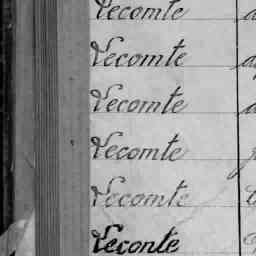 Lecomte
Lecomte
Lecomte
Lecomte
Lecomte
Leconte